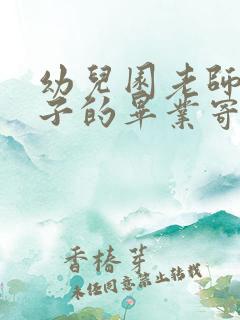 幼兒園老師
子的畢業寄
香椿芽
未經同意禁止轉載